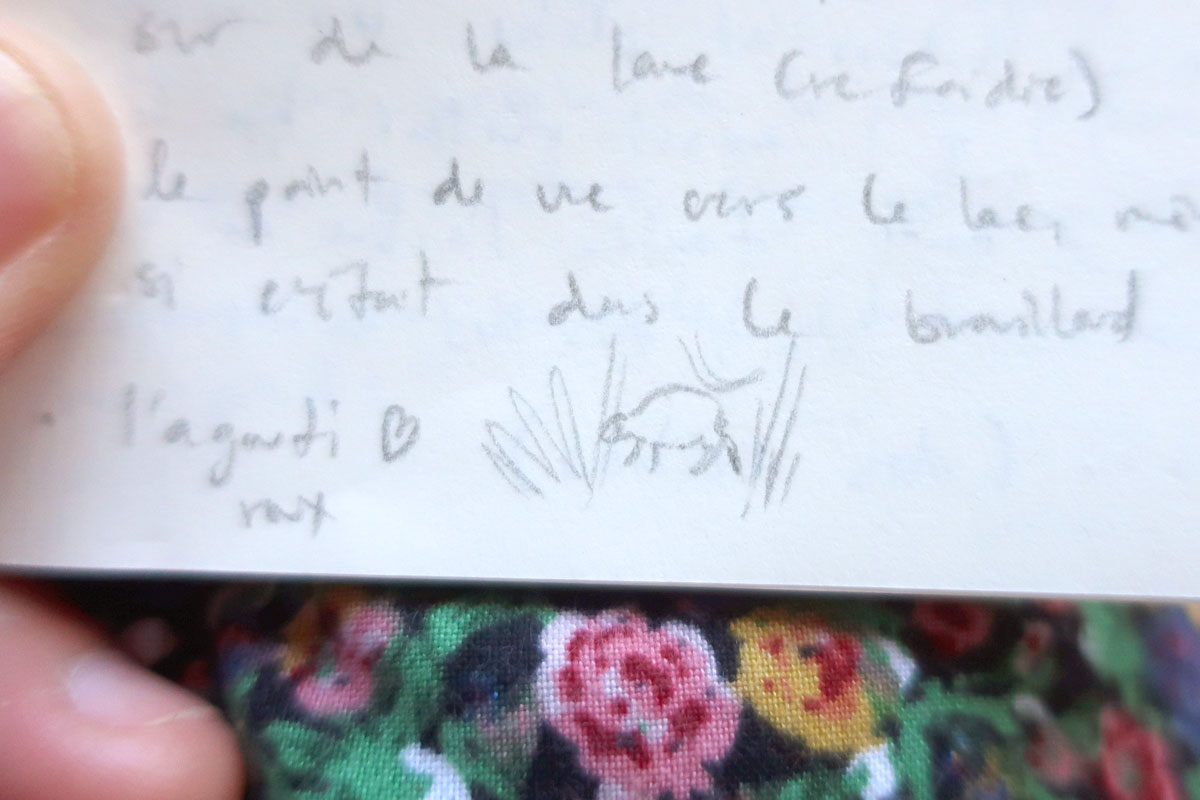 sur de la lave (refroidie)
le point de vue vers le lac, mê
si c'était dans le brouillard
· l'agouti ♡
roux